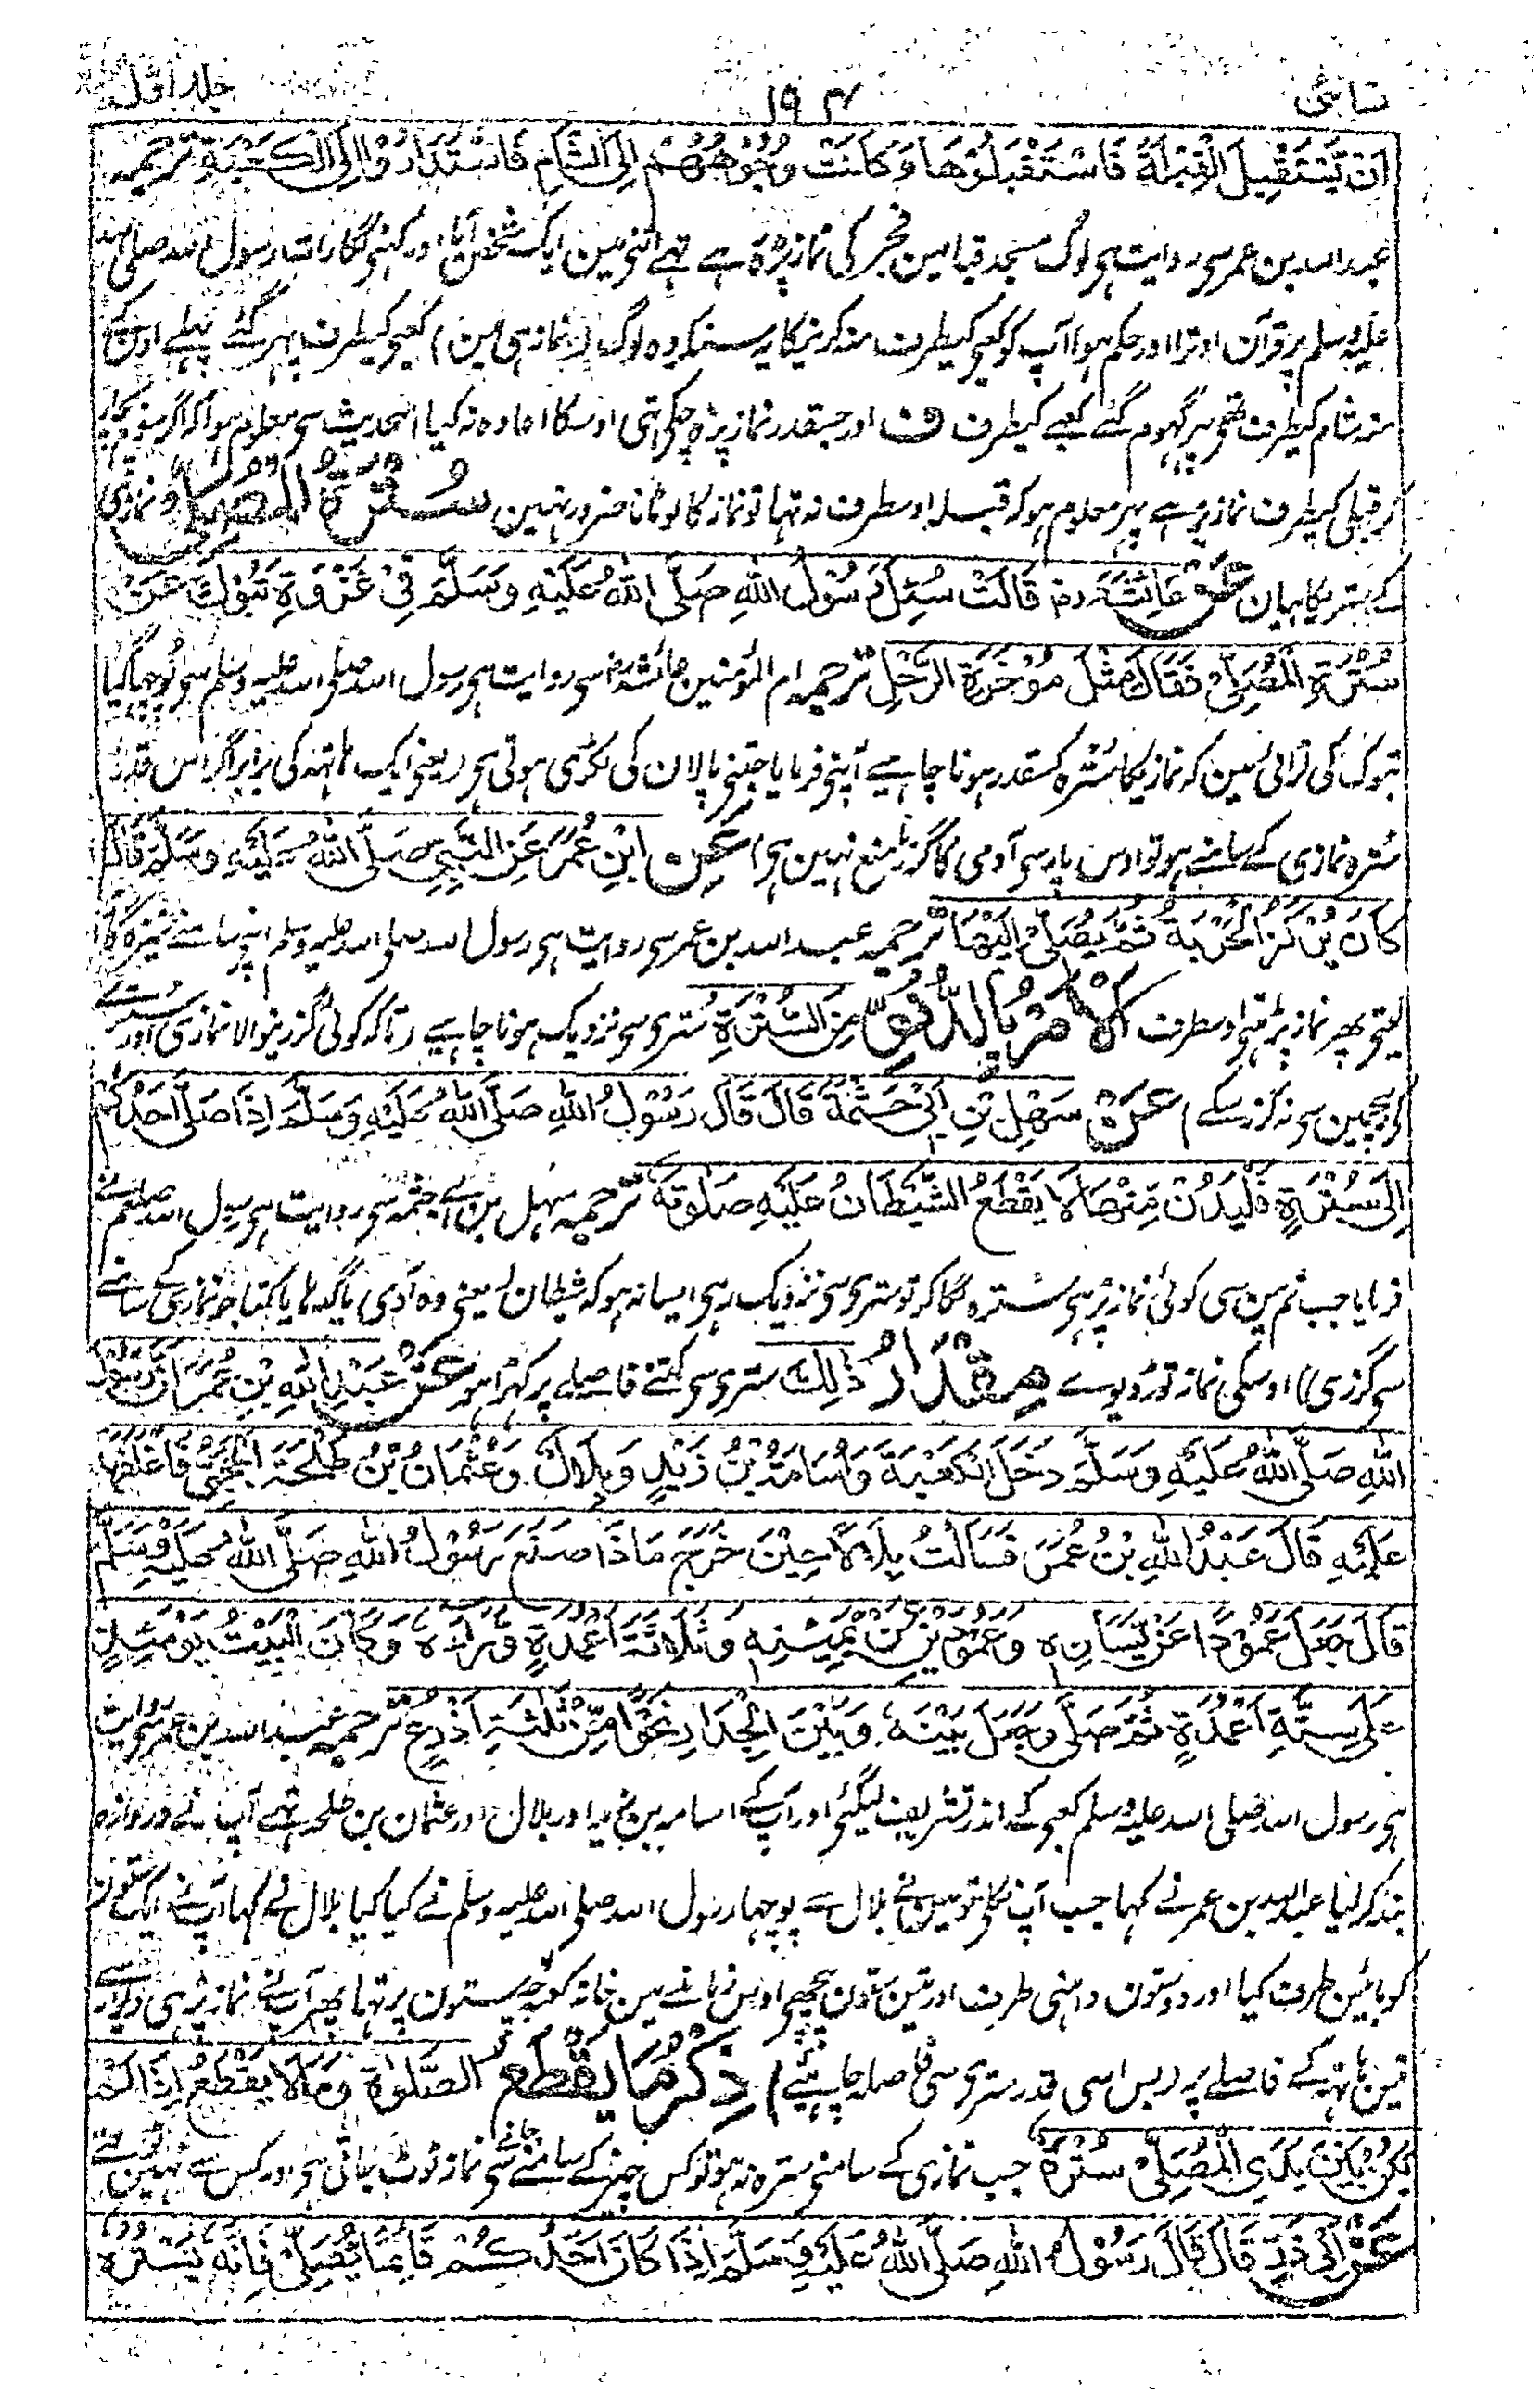 نسائی ۱۹۴ جلد اول
اَنْ يَّسْتَقْبِلَ الْقِبْلَةَ فَاسْتَقْبَلُوْهَا وَكَانَتْ وُجُوْهُهُمْ اِلَى الشَّامِ فَاسْتَدَارُوْا اِلَى الْكَعْبَةِ ترجمہ
عبد اللہ بن عمر سی روایت ہی لوگ مسجد قبا مین فجر کی نماز پڑہ رہے تہے اتنی مین ایک شخص آیا اور کہنی لگا رات رسول اللہ صلی اللہ
علیہ وسلم پر قرآن اوترا اور حکم ہوا آپ کو کعبی کیطرف منہ کرنیکا یہ سنکر وہ لوگ (نماز ہی مین) کعبی کیطرف پہر گئے پہلے اون کے
منہ شام کیطرف تھی پہر گہوم گئے کعبے کیطرف ف اور جسقدر نماز پڑہ چکی تھی اوسکا اعادہ نہ کیا اس حدیث سی معلوم ہوا کہ اگر
کر قبلی کیطرف نماز پڑہے پہر معلوم ہو کہ قبلہ اوسطرف نہ تہا تو نماز کا لوٹانا ضرور نہین سُتْرَةُ الْمُصَلِّيْ نمازی
کے سترے کا بیان عَنْ عَائِشَةَ رض قَالَتْ سُئِلَ رَسُوْلُ اللهِ صَلَّى اللهُ عَلَيْهِ وَسَلَّمَ فِيْ غَزْوَةِ تَبُوْكَ عَنْ
سُتْرَةِ الْمُصَلِّيْ فَقَالَ مِثْلَ مُؤْخَرَةِ الرَّحْلِ ترجمہ ام المؤمنین عائشہ رض سی روایت ہی رسول اللہ صلی اللہ علیہ وسلم سی پوچہا گیا
تبوک کی لڑائی مین کہ نمازیکا سترہ کسقدر ہونا چاہیے آپنی فرمایا جتنی پالان کی لکڑی ہوتی ہی (یعنی ایک ہاتہہ کی برابر اگر اس قدر
سترہ نمازی کے سامنے ہو تو اوس پار سی آدمی کا گزرنا منع نہین ہی) عَنِ ابْنِ عُمَرَ عَنِ النَّبِيِّ صَلَّى اللهُ عَلَيْهِ وَسَلَّمَ قَالَ
كَانَ يَرْكُزُ الْحَرْبَةَ ثُمَّ يُصَلِّيْ اِلَيْهَا ترجمہ عبد اللہ بن عمر سی روایت ہی رسول اللہ صلی اللہ علیہ وسلم اپنے سامنے نیزہ گاڑ
لیتی پھر نماز پڑہتی اوسطرف اَلْاَمْرُ بِالدُّنُوِّ مِنَ السُّتْرَةِ سُتری سی نزدیک ہونا چاہیے (تاکہ کوئی گزرنیوالا نمازی اور سترے
کی بیچ مین سی نہ گزر سکے) عَنْ سَهْلِ بْنِ اَبِيْ حَثْمَةَ قَالَ قَالَ رَسُوْلُ اللهِ صَلَّى اللهُ عَلَيْهِ وَسَلَّمَ اِذَا صَلّٰى اَحَدُكُمْ
اِلٰى سُتْرَةٍ فَلْيَدْنُ مِنْهَا لَا يَقْطَعُ الشَّيْطَانُ عَلَيْهِ صَلٰوتَهٗ ترجمہ سہل بن ابے حثمہ سی روایت ہی رسول اللہ صلعم نے
فرمایا جب تم مین سی کوئی نماز پڑہی سترہ لگا کر تو ستری سی نزدیک رہی ایسا نہ ہو کہ شیطان (یعنی وہ آدمی یا گدہا یا کتا جو نمازی کے سامنے
سی گزری) اوسکی نماز توڑ دیوے مِقْدَارُ ذٰلِكَ ستری سی کتنے فاصلے پر کہڑا ہو عَنْ عَبْدِ اللهِ بْنِ عُمَرَ اَنَّ رَسُوْلَ
اللهِ صَلَّى اللهُ عَلَيْهِ وَسَلَّمَ دَخَلَ الْكَعْبَةَ وَاُسَامَةُ بْنُ زَيْدٍ وَبِلَالٌ وَعُثْمَانُ بْنُ طَلْحَةَ الْحَجَبِيُّ فَاَغْلَقَهَا
عَلَيْهِ قَالَ عَبْدُ اللهِ بْنُ عُمَرَ فَسَاَلْتُ بِلَالًا حِيْنَ خَرَجَ مَاذَا صَنَعَ رَسُوْلُ اللهِ صَلَّى اللهُ عَلَيْهِ وَسَلَّمَ
قَالَ جَعَلَ عَمُوْدًا عَنْ يَّسَارِهٖ وَعَمُوْدَيْنِ عَنْ يَّمِيْنِهٖ وَثَلَاثَةَ اَعْمِدَةٍ وَّرَاءَهٗ وَكَانَ الْبَيْتُ يَوْمَئِذٍ
عَلٰى سِتَّةِ اَعْمِدَةٍ ثُمَّ صَلّٰى وَجَعَلَ بَيْنَهٗ وَبَيْنَ الْجِدَارِ نَحْوًا مِّنْ ثَلٰثَةِ اَذْرُعٍ ترجمہ عبد اللہ بن عمر سی روایت
ہی رسول اللہ صلی اللہ علیہ وسلم کعبی کے اندر تشریف لیگئی اور آپ کے اسامہ بن زید اور بلال اور عثمان بن طلحہ تہے آپ نے دروازہ
بند کر لیا عبد اللہ بن عمر نے کہا جب آپ نکلی تو مین نے بلال سے پوچہا رسول اللہ صلی اللہ علیہ وسلم نے کیا کیا بلال نے کہا آپ نے ایک ستون
کو بائین طرف کیا اور دو ستون داہنی طرف اور تین ستون پیچھی اوس زمانے مین خانہ کعبہ چہ ستون پر تہا پھر آپ نے نماز پڑہی دیوار سے
تین ہاتہہ کے فاصلے پر (بس اسی قدر ستری سی فاصلہ چاہیئے) ذِكْرُ مَا يَقْطَعُ الصَّلٰوةَ وَمَا لَا يَقْطَعُ اِذَا لَمْ
يَكُنْ بَيْنَ يَدَيِ الْمُصَلِّيْ سُتْرَةٌ جب نمازی کے سامنی سترہ نہ ہو تو کس چیز کے سامنے جانے سی نماز ٹوٹ جاتی ہی اور کس سے نہین ٹوٹتے
عَنْ اَبِيْ ذَرٍّ قَالَ قَالَ رَسُوْلُ اللهِ صَلَّى اللهُ عَلَيْهِ وَسَلَّمَ اِذَا كَانَ اَحَدُكُمْ قَائِمًا يُّصَلِّيْ فَاِنَّهٗ يَسْتُرُهٗ